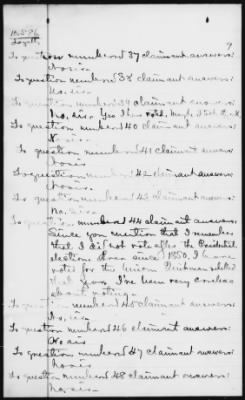 7
To question numbered 37 claimant answers:
No sir.
To question numbered 38 claimant answers:
No sir.
To question numbered 39 claimant answers:
No, sir. Yes I have voted.
To question numbered 40 claimant answers:
To question numbered 41 claimant answers:
No sir
To question numbered 42 claimant answers:
No sir.
To question numbered 43 claimant answers:
No, sir.
To question numbered 44 claimant answers:
Since you mention that I remember
that I did not vote after the Presidential
elections since 1850, I have
voted for the Union
that I've been very careless
about voting.
To question numbered 45 claimant answers:
No, sir.
To question numbered 46 claimant answers:
No sir
To question numbered 47 claimant answers:
No sir
To question numbered 48 claimant answers:
No, sir.